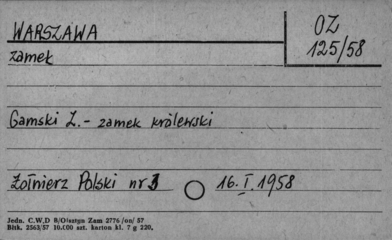 WARSZAWA
OZ
125/58
zamek
Gamski Z. - zamek królewski
Żołnierz Polski nr 3 16. I. 1958
Jedn. C.W.D 8/Olsztyn Zam 2776/on/ 57
Bltk. 2563/57 10.000 szt. karton kl. 7 g 220,